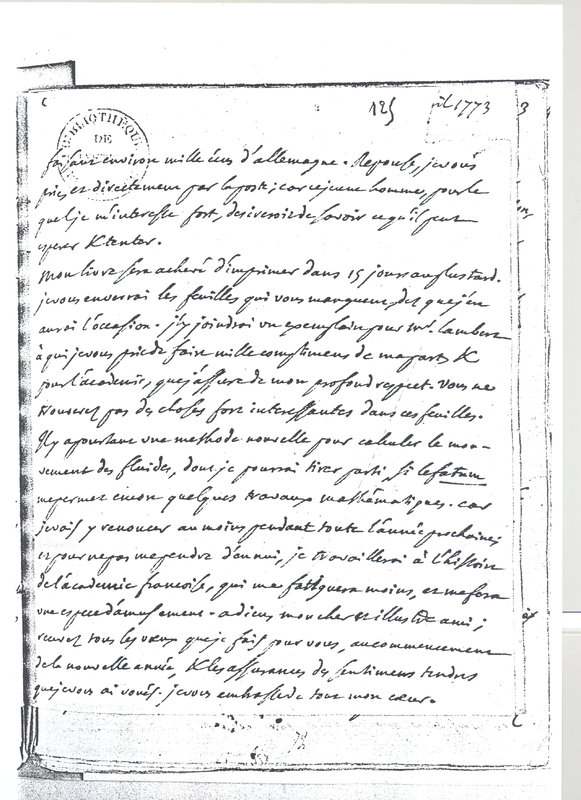 125
ril 1773
3
BIBLIOTHÈQUE
DE
faisant environ mille écus d'allemagne. Reponse, je vous
prie, et directement par la poste; car ce jeune homme, pour le
quel je m'interesse fort, desireroit de savoir ce qu'il peut
esperer & tenter.
Mon livre sera achevé d'imprimer dans 15 jours au plus tard.
je vous enverrai les feuilles qui vous manquent, dès que j'en
aurai l'occasion. j'y joindrai un exemplaire pour Mr. Lambert
à qui je vous prie de faire mille complimens de ma part &
pour l'académie, que j'assure de mon profond respect. Vous ne
trouverez pas des choses fort interessantes dans ces feuilles.
Il y a pourtant une methode nouvelle pour calculer le mou-
vement des fluides, dont je pourrai tirer parti si le fatum
me permet encor quelques travaux mathématiques. car
je vais y renoncer au moins pendant toute l'année prochaine;
et pour ne pas me pendre d'ennui, je travaillerai à l'histoire
de l'academie françoise, qui me fatiguera moins, et me fera
une espece d'amusement. adieu mon cher et illustre ami;
recevez tous les vœux que je fais pour vous, au commencement
de la nouvelle année, & les assurances des sentimens tendres
que je vous ai voués. je vous embrasse de tout mon cœur.